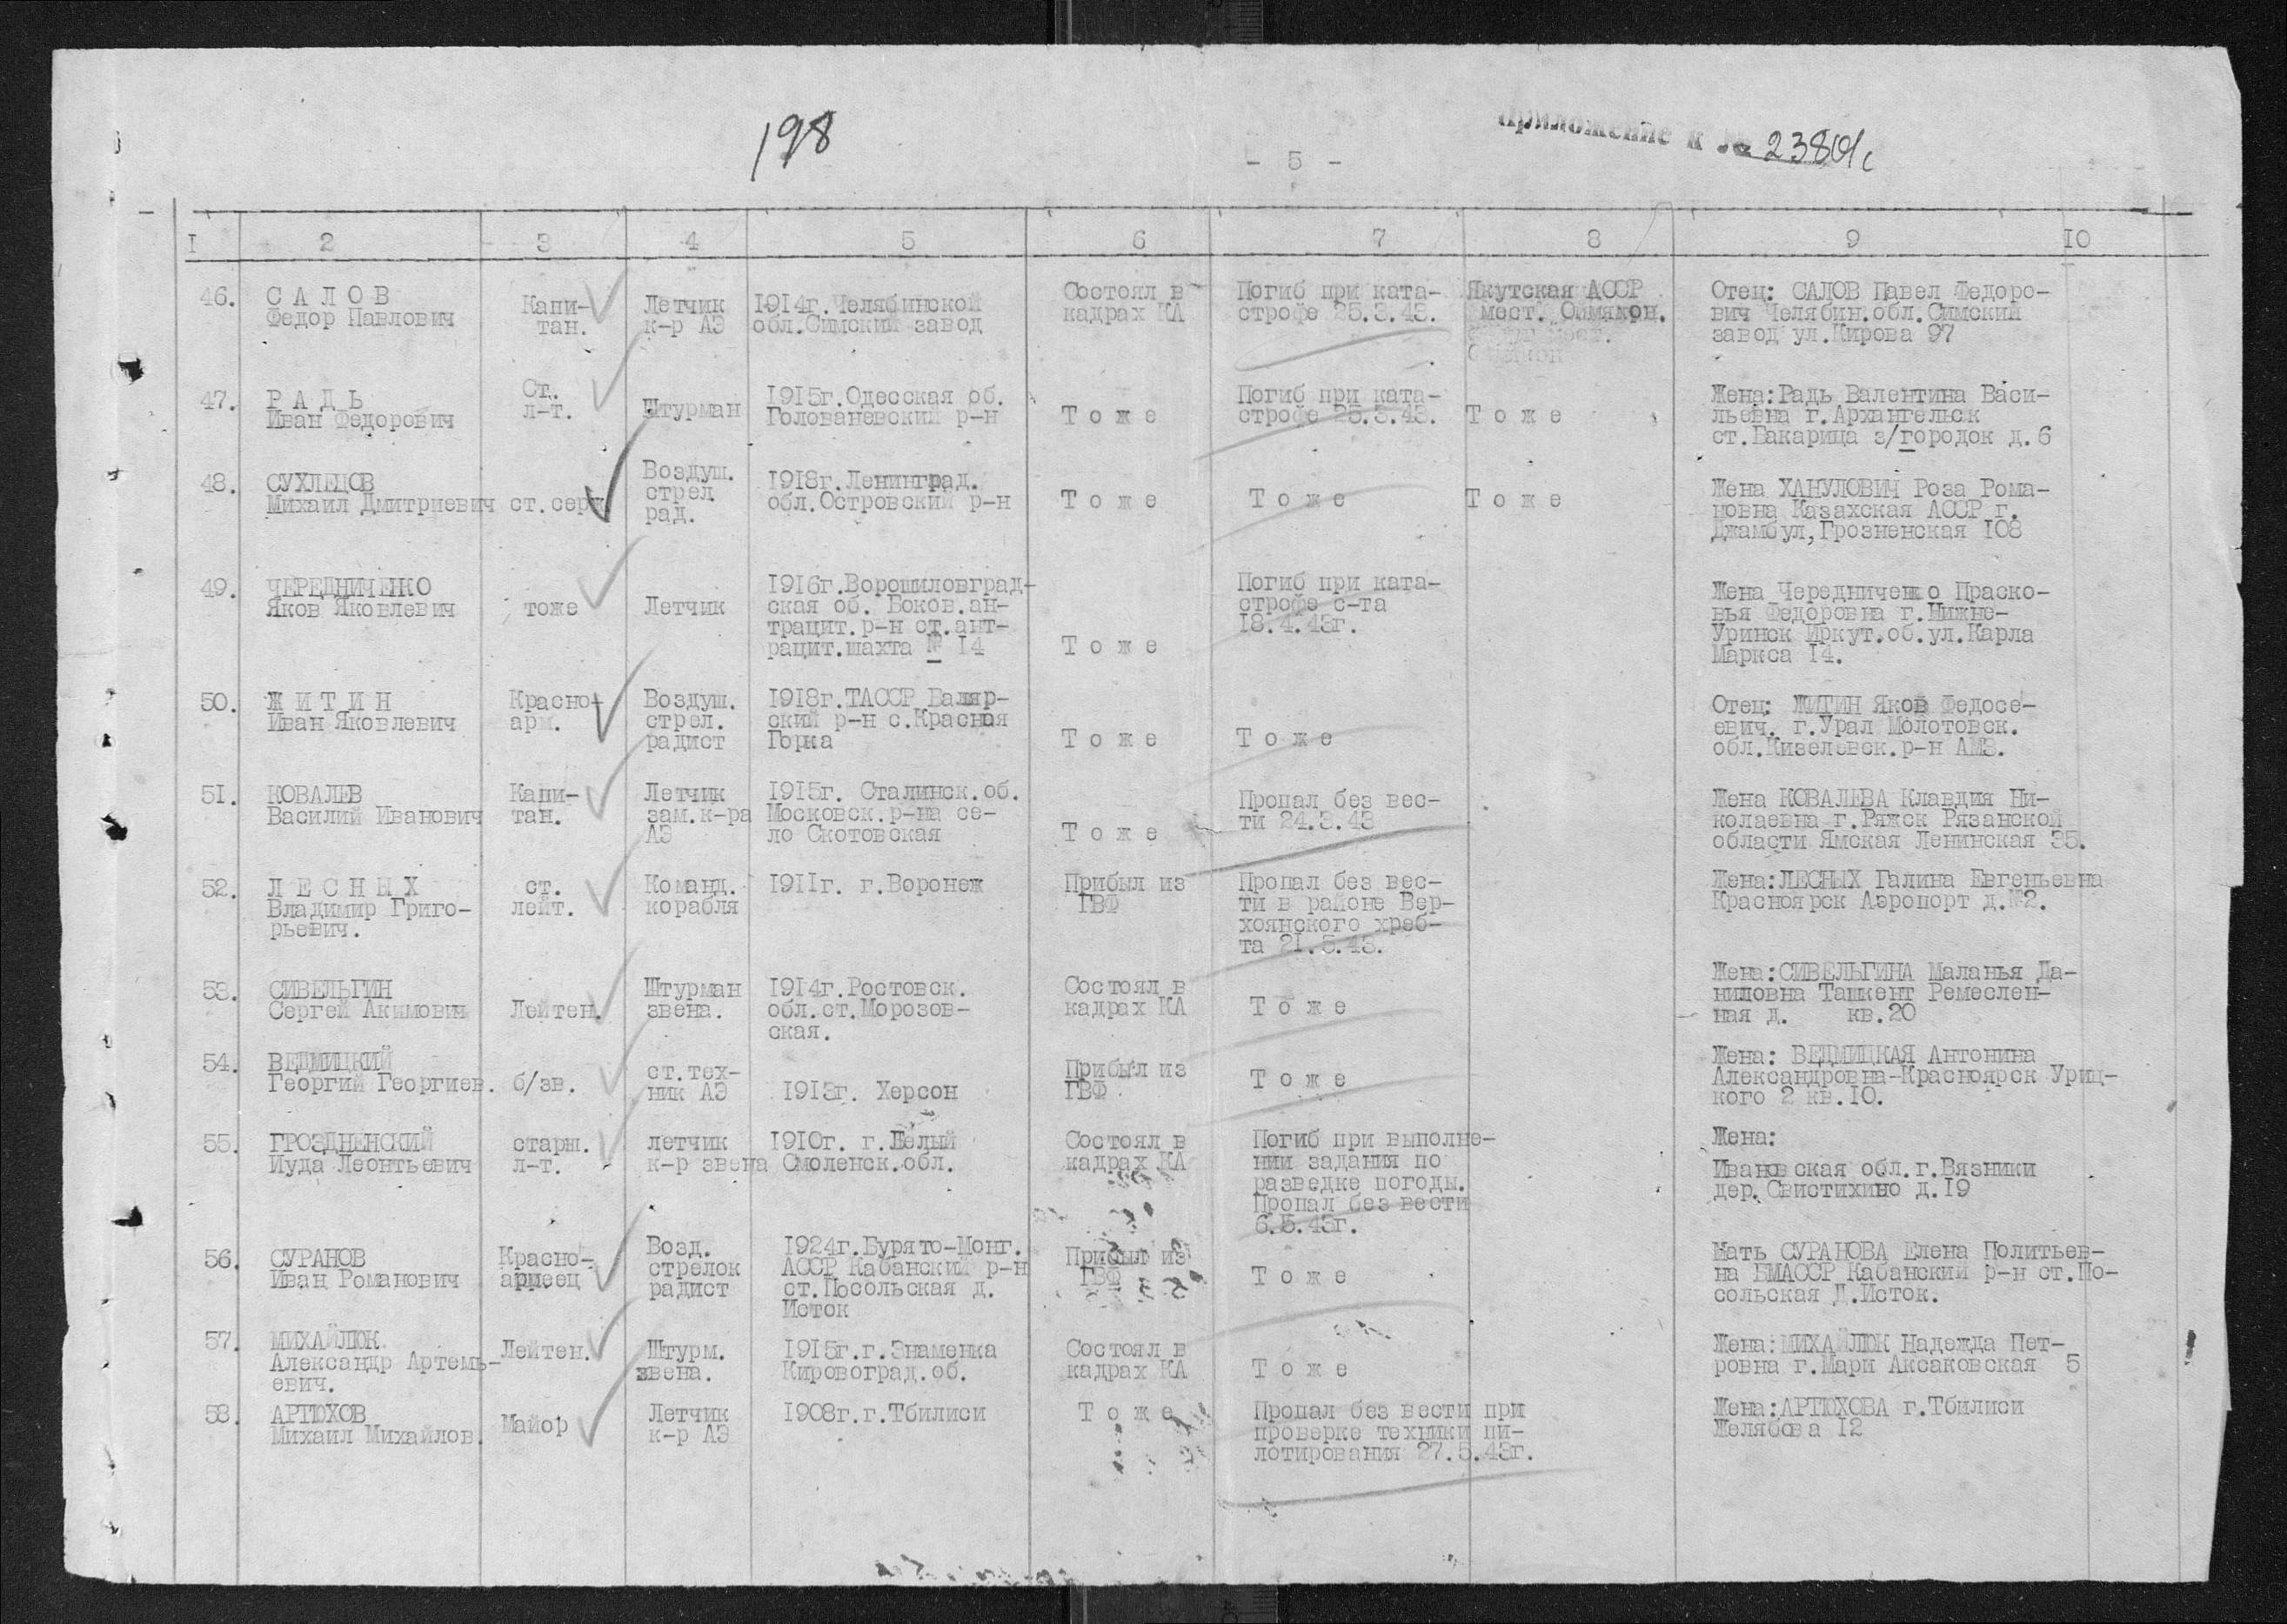 198
Приложение к № 23801с
- 5 -
I 2 3 4 5 6 7 8 9 10
46. С А Л О В
Федор Павлович
Капи-
тан.
Летчик
к-р АЭ
1914г.Челябинской
обл.Симский завод
Состоял в
кадрах КА
Погиб при ката-
строфе 25.3.43.
Якутская АССР
мест. Оймякон.
Отец: САЛОВ Павел Федоро-
вич Челябин.обл.Симский
завод ул.Кирова 97
47. Р А Д Ь
Иван Федорович
Ст.
л-т.
Штурман
1915г.Одесская об.
Голованевский р-н
Т о ж е
Погиб при ката-
строфе 25.3.43.
Т о ж е
Жена:Радь Валентина Васи-
льевна г.Архангельск
ст.Бакарица з/городок д.6
48. СУХЛЕЦОВ
Михаил Дмитриевич
ст.серж
Воздуш.
стрел
рад.
1918г.Ленинград.
обл.Островский р-н
Т о ж е
Т о ж е
Т о ж е
Жена ХАНУЛОВИЧ Роза Рома-
новна Казахская АССР г.
Джамбул,Грозненская 108
49. ЧЕРЕДНИЧЕНКО
Яков Яковлевич
тоже
Летчик
1916г.Ворошиловград-
ская об. Боков.ан-
трацит.р-н ст.ант-
рацит.шахта № 14
Т о ж е
Погиб при ката-
строфе с-та
18.4.43г.
Жена Чередниченко Праско-
вья Федоровна г.Нижне-
Уринск Иркут.об.ул.Карла
Маркса 14.
50. Ж И Т И Н
Иван Яковлевич
Красно-
арм.
Воздуш.
стрел.
радист
1918г.ТАССР Баляр-
ский р-н с.Красная
Горка
Т о ж е
Т о ж е
Отец: ЖИТИН Яков Федосе-
евич. г.Урал Молотовск.
обл.Кизеловск.р-н АМЗ.
51. КОВАЛЕВ
Василий Иванович
Капи-
тан.
Летчик
зам.к-ра
АЭ
1915г. Сталинск.об.
Московск.р-на се-
ло Скотовская
Т о ж е
Пропал без вес-
ти 24.3.43
Жена КОВАЛЕВА Клавдия Ни-
колаевна г.Ряжск Рязанской
области Ямская Ленинская 35.
52. Л Е С Н Ы Х
Владимир Григо-
рьевич.
ст.
лейт.
Команд.
корабля
1911г. г.Воронеж
Прибыл из
ГВФ
Пропал без вес-
ти в районе Вер-
хоянского хреб-
та 21.5.43.
Жена:ЛЕСНЫХ Галина Евгеньевна
Красноярск Аэропорт д.№2.
53. СИВЕЛЬГИН
Сергей Акимович
Лейтен.
Штурман
звена.
1914г.Ростовск.
обл.ст.Морозов-
ская.
Состоял в
кадрах КА
Т о ж е
Жена:СИВЕЛЬГИНА Маланья Да-
ниловна Ташкент Ремеслен-
ная д. кв.20
54. ВЕДМИЦКИЙ
Георгий Георгиев.
б/зв.
ст.тех-
ник АЭ
1913г. Херсон
Прибыл из
ГВФ
Т о ж е
Жена: ВЕДМИЦКАЯ Антонина
Александровна-Красноярск Уриц-
кого 2 кв.10.
55. ГРОЗДНЕНСКИЙ
Иуда Леонтьевич
старш.
л-т.
летчик
к-р звена
1910г. г.Белый
Смоленск.обл.
Состоял в
кадрах КА
Погиб при выполне-
нии задания по
разведке погоды.
Пропал без вести
6.5.43г.
Жена:
Ивановская обл.г.Вязники
дер.Свистихино д.19
56. СУРАНОВ
Иван Романович
Красно-
армеец
Возд.
стрелок
радист
1924г.Бурято-Монг.
АССР Кабанский р-н
ст.Посольская д.
Исток
Прибыл из
ГВФ
Т о ж е
Мать СУРАНОВА Елена Политьев-
на БМАССР Кабанский р-н ст.По-
сольская Д.Исток.
57. МИХАЙЛЮК
Александр Артемь-
евич.
Лейтен.
Штурм.
звена.
1915г.г.Знаменка
Кировоград.об.
Состоял в
кадрах КА
Т о ж е
Жена:МИХАЙЛЮК Надежда Пет-
ровна г.Мари Аксаковская 5
58. АРТЮХОВ
Михаил Михайлов.
Майор
Летчик
к-р АЭ
1908г.г.Тбилиси
Т о ж е
Пропал без вести при
проверке техники пи-
лотирования 27.5.43г.
Жена:АРТЮХОВА г.Тбилиси
Желябова 12